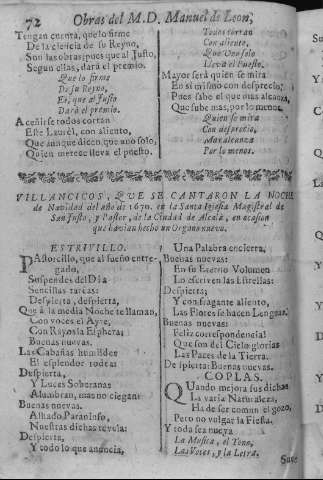 72 Obras del M. D. Manuel de Leon,
Tengan cuenta, que lo firme
De la ciencia de su Reyno,
Son las obras; pues que al Justo,
Segun ellas, dará el premio.
Que lo firme
De su Reyno,
Es, que al Justo
Dará el premio.
A ceñirse todos corran
Este Laurèl, con aliento,
Que aunque dicen, que uno solo,
Quien merece lleva el puesto.
Todos corran
Con aliento,
Que Uno solo
Llevá el Puesto.
Mayor será quien se mira
En sí mismo con desprecio;
Pues sabe el que mas alcanza,
Que sube mas, por lo menos.
Quien se mira
Con desprecio,
Mas alcanza
Por lo menos.
VILLANCICOS, QUE SE CANTARON LA NOCHE
de Navidad del año de 1670. en la Santa Iglesia Magistral de
San Justo, y Pastor, de la Ciudad de Alcalà, en ocasion
que havian hecho un Organo nuevo.
ESTRIVILLO.
PAstorcillo, que al sueño entre-
gado,
Suspendes del Dia
Sencillas tareas:
Despierta, despierta,
Que à la media Noche te llaman,
Con voces el Ayre,
Con Rayos la Esphera:
Buenas nuevas.
Las Cabañas humildes
El esplendor rodea:
Despierta,
Y Luces Soberanas
Alumbran, mas no ciegan:
Buenas nuevas.
Alhado Paraninfo,
Nuestras dichas revela:
Despierta,
Y todo lo que anuncia,
Una Palabra encierra,
Buenas nuevas:
En su Eterno Volumen
Lo escriven las Estrellas:
Despierta;
Y con fragante aliento,
Las Flores se hacen Lenguas:
Buenas nuevas:
Feliz correspondencia!
Que son del Cielo glorias
Las Paces de la Tierra.
Despierta: Buenas nuevas.
COPLAS.
QUando mejora sus dichas
La varia Naturaleza,
Ha de ser comun el gozo,
Pero no vulgar la Fiesta.
Y toda sea nueva
La Musica, el Tono,
Las Voces, y la Letra.